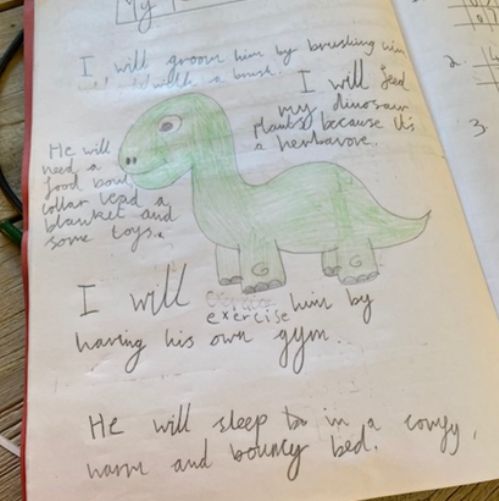 My
I will groom him by brushing him
with a brush.
I will feed
my dinosaur
plants because it's
a herbavore.
He will
need a
food bowl,
collar lead a
blanket and
some toys.
I will exercise him by
having his own gym.
He will sleep in a comfy,
warm and bouncy bed.
2.
3.